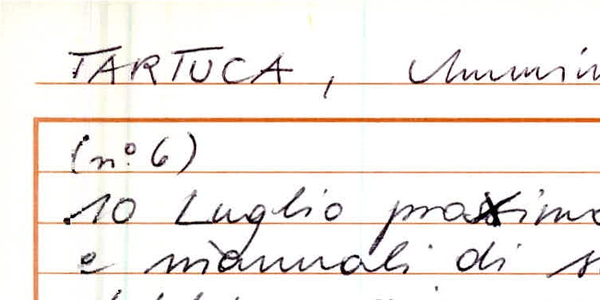 TARTUCA,
(n° 6)
10 Luglio prossimo
e manuali di